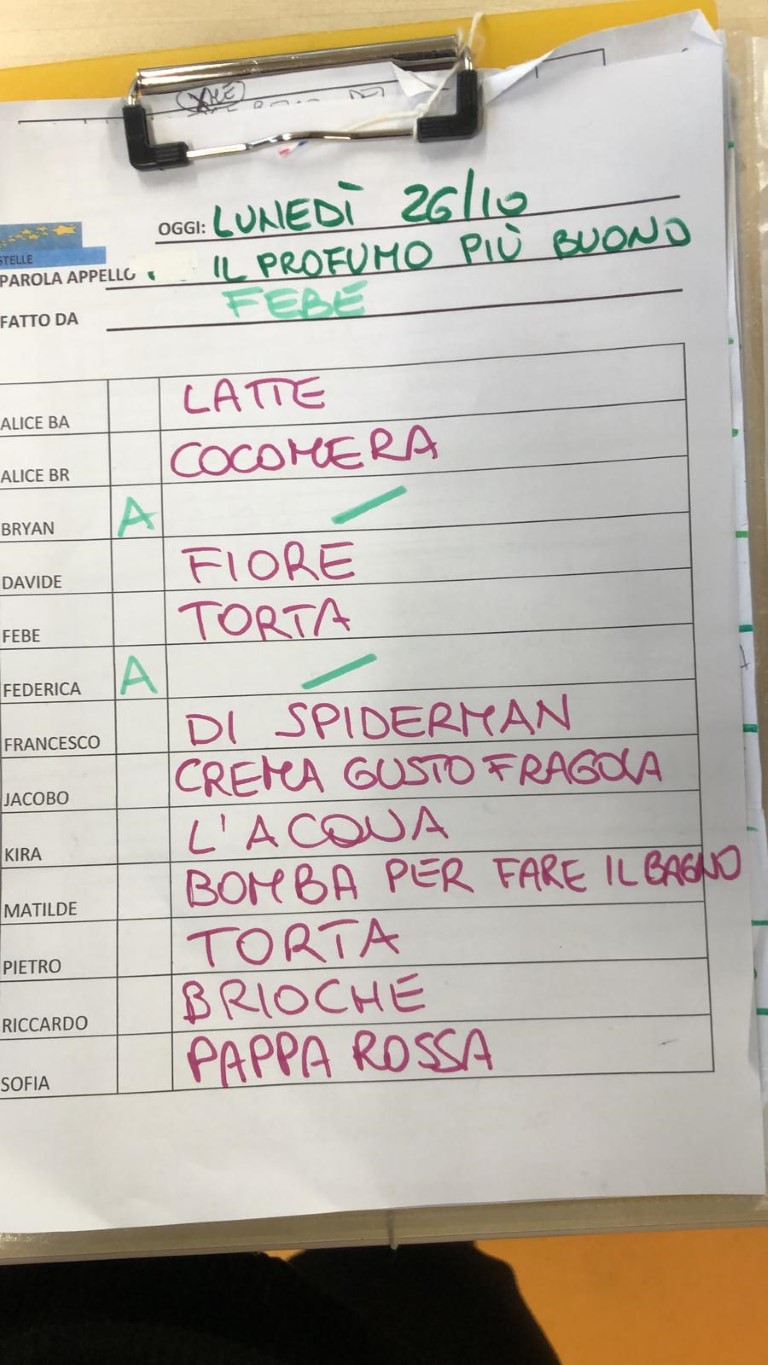 OGGI: LUNEDÌ 26/10
STELLE
PAROLA APPELLO. IL PROFUMO PIÙ BUONO
FATTO DA FEBE
ALICE BA LATTE
ALICE BR COCOMERA
BRYAN A
DAVIDE FIORE
FEBE TORTA
FEDERICA A
FRANCESCO DI SPIDERMAN
JACOBO CREMA GUSTO FRAGOLA
KIRA L'ACQUA
MATILDE BOMBA PER FARE IL BAGNO
PIETRO TORTA
RICCARDO BRIOCHE
SOFIA PAPPA ROSSA